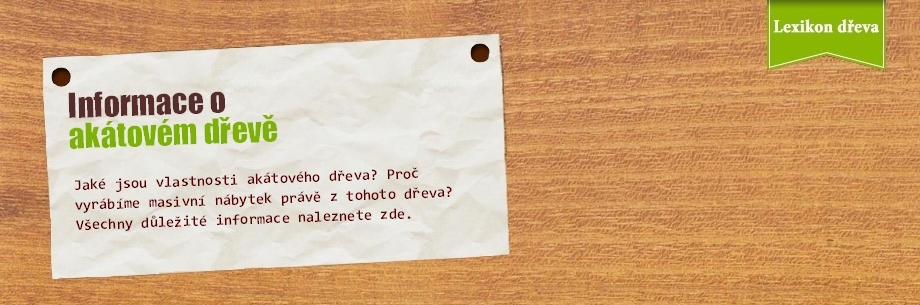 Lexikon dřeva
Informace o
akátovém dřevě
Jaké jsou vlastnosti akátového dřeva? Proč
vyrábíme masivní nábytek právě z tohoto dřeva?
Všechny důležité informace naleznete zde.